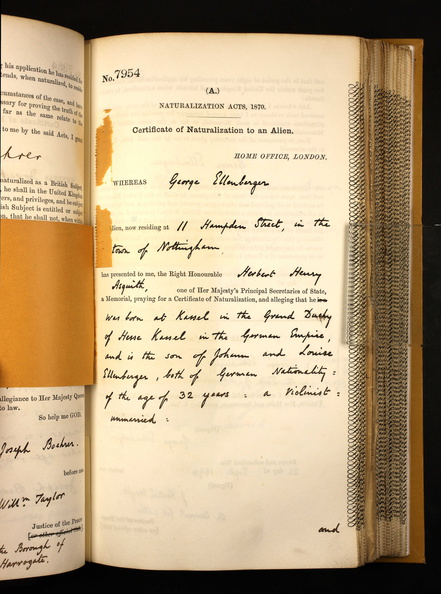 g his application he has resided
tends, when naturalized, to reside
cumstances of the case, and have
ssary for proving the truth of the
far as the same relate to the
to me by the said Acts, I grant
hrer
naturalized as a British Subject
he shall in the United Kingdom
ers, and privileges, and be subject
ish Subject is entitled or subject
en, that he shall not, when within
allegiance to Her Majesty Queen
to law.
So help me GOD.
Joseph Boehrer.
before me
Willm Taylor
Justice of the Peace
the Borough of
Harrogate.
No. 7954
(A.)
NATURALIZATION ACTS, 1870.
Certificate of Naturalization to an Alien.
HOME OFFICE, LONDON.
WHEREAS George Ellenberger
lien, now residing at 11 Hampden Street, in the
town of Nottingham
has presented to me, the Right Honourable Herbert Henry
Asquith, one of Her Majesty's Principal Secretaries of State,
a Memorial, praying for a Certificate of Naturalization, and alleging that he
was born at Kassel in the Grand Duchy
of Hesse Kassel in the German Empire,
and is the son of Johann and Louise
Ellenberger, both of German Nationality =
of the age of 32 years : a Violinist =
unmarried :
and